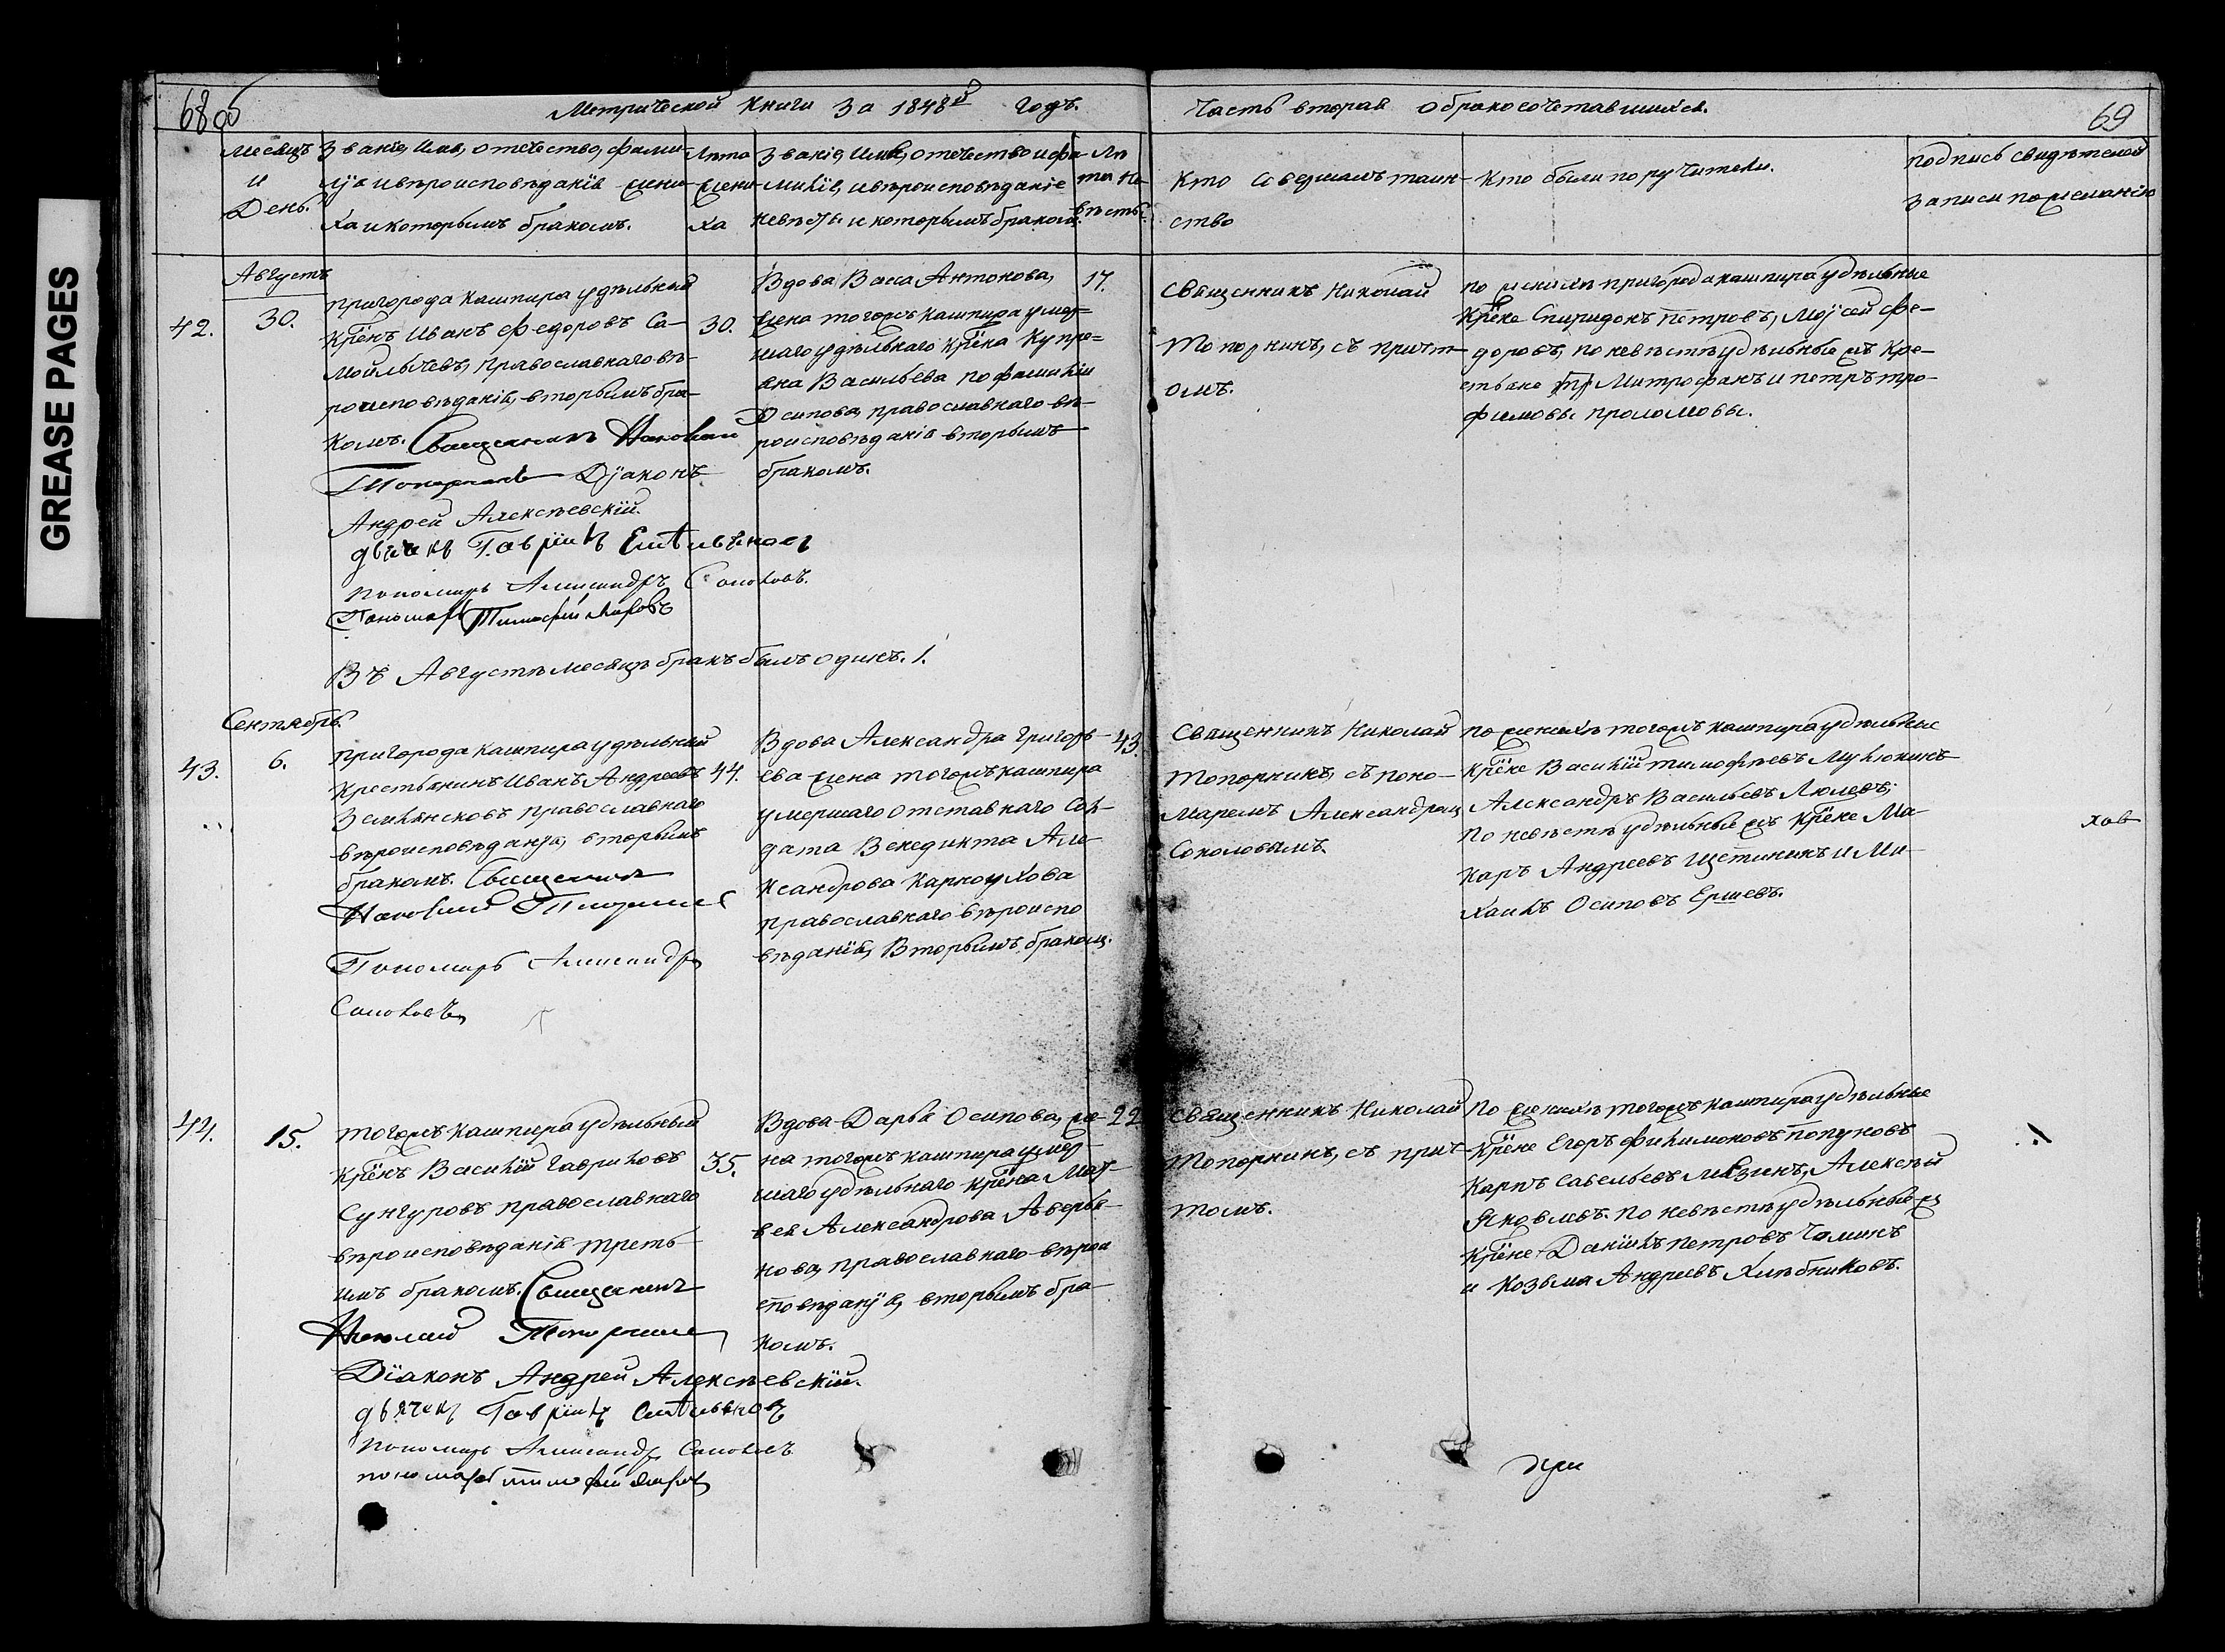 GREASE PAGES
68 об
Метрической книги за 1848й годъ.
Часть вторая о бракосочетавшихся.
69
Месяцъ
и
День.
Званіе, имя, отечество, фами-
лія и вѣроисповѣданія жени-
ха и которымъ бракомъ.
Лѣта
жени-
ха
Званіе, имя, отечество и фа-
милія, и вѣроисповѣданіе
невѣсты и которымъ бракомъ.
Лѣ
та не-
вѣсты.
Кто совершалъ таин-
ство
Кто были поручители.
подпись свидѣтелей
записи по желанію
Августъ
42.
30.
пригорода кашпира удѣльный
Крѣнъ Иванъ Федоровъ Са-
мойлычевъ, православнаго вѣ-
роисповѣданія, вторымъ бра-
комъ. Священникъ Николай
Топорнинъ Діаконъ
Андрей Алексѣевскій.
дьячекъ Гавріилъ
пономарь Александръ Соколовъ.
Пономарь Тимофѣй
30.
Вдова Васса Антонова,
жена тогожъ кашпира умер=
шаго удѣльнаго крѣна Купре=
яна Васильева по фамиліи
Осипова, православнаго вѣ-
роисповѣданія вторымъ
бракомъ.
17.
Священникъ Николай
Топорнинъ, съ причт-
омъ.
по женихѣ пригорода кашпира удѣльные
Крѣне Спиридонъ Петровъ, Моѵсей Фе-
доровъ, по невѣстѣ удѣльные жъ кре-
стьяне Митрофанъ и петръ тро-
фимовы проломовы.
Въ Августѣ месяцѣ бракъ былъ одинъ. 1.
Сентябрь.
43.
6.
пригорода кашпира удѣльный
крестьянинъ Иванъ Андреевъ
Землянсковъ православнаго
вѣроисповѣданія, вторымъ
бракомъ. Священникъ
Николай Топорнинъ
Пономарь Александръ
Соколовъ
44.
Вдова Александра Григорь-
ева жена тогожъ кашпира
умершаго отставнаго Сол-
дата Венедикта Але-
ксандрова Карноухова
православнаго вѣроиспо
вѣданія, Вторымъ бракомъ.
43.
Священникъ Николай
Топорнинъ, съ поно-
маремъ Александромъ
Соколовымъ.
по женихѣ тогожъ кашпира удѣльные
крѣне Василій тимофѣевъ Мулюкинъ
Александръ Васильевъ
По невѣстѣ удѣльные жъ крѣне Ма-
каръ Андреевъ Щетининъ и Ми-
хаилъ Осиповъ Ершевъ.
хов
44.
15.
тогожъ кашпира удѣльный
крѣнъ Василій Гавриловъ
Сунгуровъ православнаго
вѣроисповѣданія треть-
имъ бракомъ. Священникъ
Николай Топорнинъ
Діаконъ Андрей Алексѣевскій.
дьячекъ Гавріилъ
пономарь Александръ Соколовъ
пономарь тимофѣй
35.
Вдова Дарья Осипова, же-
на тогожъ кашпира умер-
шаго удѣльнаго крѣна Мат-
вея Александрова Аверья-
нова, православнаго вѣрои
сповѣданія, вторымъ бра-
комъ.
22
Священникъ Николай
Топорнинъ, съ прич-
томъ.
По женихѣ тогожъ кашпира удѣльные
крѣне Егоръ Филимоновъ попуновъ
Карпъ Савельевъ Алексѣй
Яковлевъ. По невѣстѣ удѣльные жъ
крѣне Даніилъ петровъ Чалинъ
и Козьма Андреевъ Хлѣбниковъ.